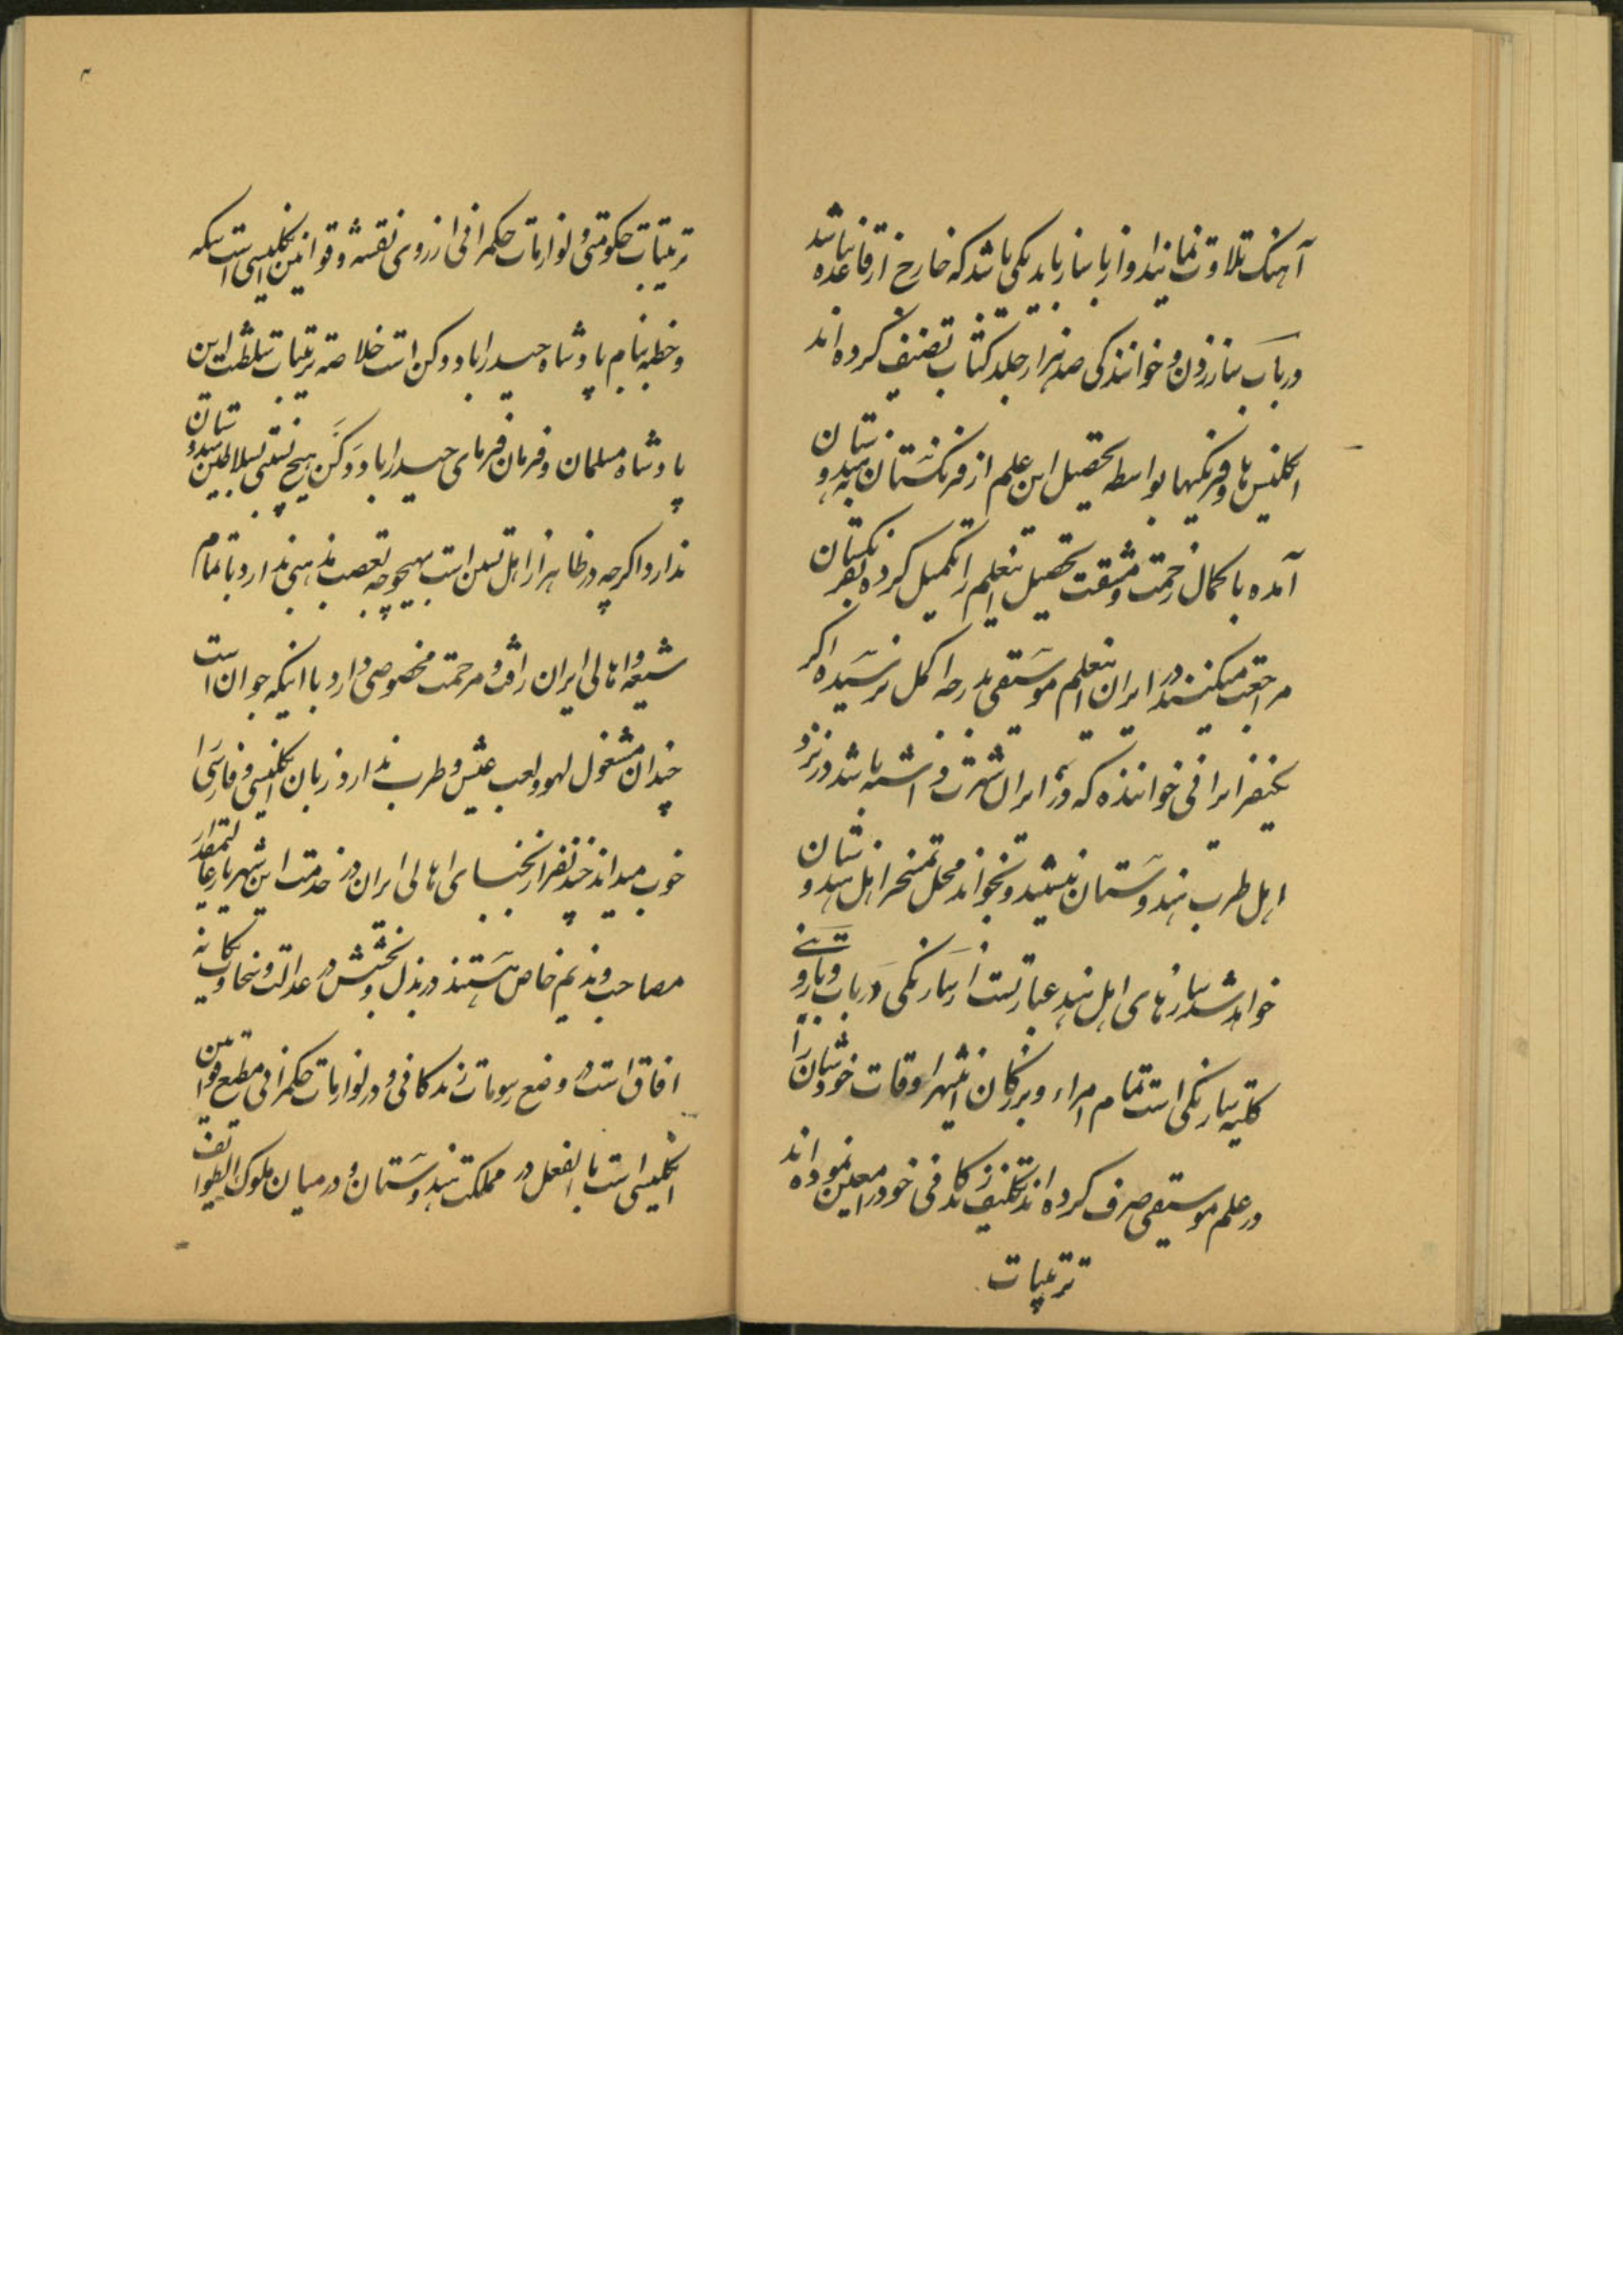 آهنک تلاوت نمانید اواز با ساز باید یکی باشد که خارج از قاعده نباشد
در باب ساز زدن و خوانندکی صد هزار جلد کتاب تصنیف کرده اند
انکلیس ها و فرنکیها بواسطه تحصیل این علم از فرنکستان بهندوستان
آمده با کمال زحمت و مشقت تحصیل اینعلم را تکمیل کرده بفرنکستان
مراجعت میکنند در ایران اینعلم موسیقی بدرجه اکمل نرسیده اکر
یکنفر ایرانی خواننده که در ایران شهرت داشته باشد در نزد
اهل طرب هندوستان بنشیند و بخواند محل تمسخر اهل هندوستان
خواهد شد سازهای اهل هند عبارتست از سارنکی و رباب و
کلیه سارنکی است تمام امراء و بزرکان اینشهر اوقات خودشان را
در علم موسیقی صرف کرده اند تکلیف زندکانی خود را معین نموده اند
ترتیبات
۳
ترتیبات حکومتی و لوازمات حکمرانی از روی نقشه و قوانین انکلیسی است سکه
و خطبه بنام پادشاه حیدراباد دکن است خلاصه ترتیبات سلطنت این
پادشاه مسلمان و فرمان فرمای حیدراباد دکن هیچ نسبتی بسلاطین هندوستان
ندارد اکرچه در ظاهر از اهل تسنن است بهیچوجه تعصب مذهبی ندارد با تمام
شیعه و اهالی ایران رافت و مرحمت مخصوصی دارد با اینکه جوان است
چندان مشغول لهو و لعب عیش و طرب ندارد زبان انکلیسی و فارسی را
خوب میداند چند نفر از نجبای اهالی ایران در خدمت این شهریار عالیمقدار
مصاحب و ندیم خاص هستند در بذل و بخشش در عدالت و سخاوت یکانه
افاق است در وضع رسومات زندکانی و در لوازمات حکمرانی مطیع قوانین
انکلیسی است بالفعل در مملکت هندوستان و در میان ملوک الطوایف